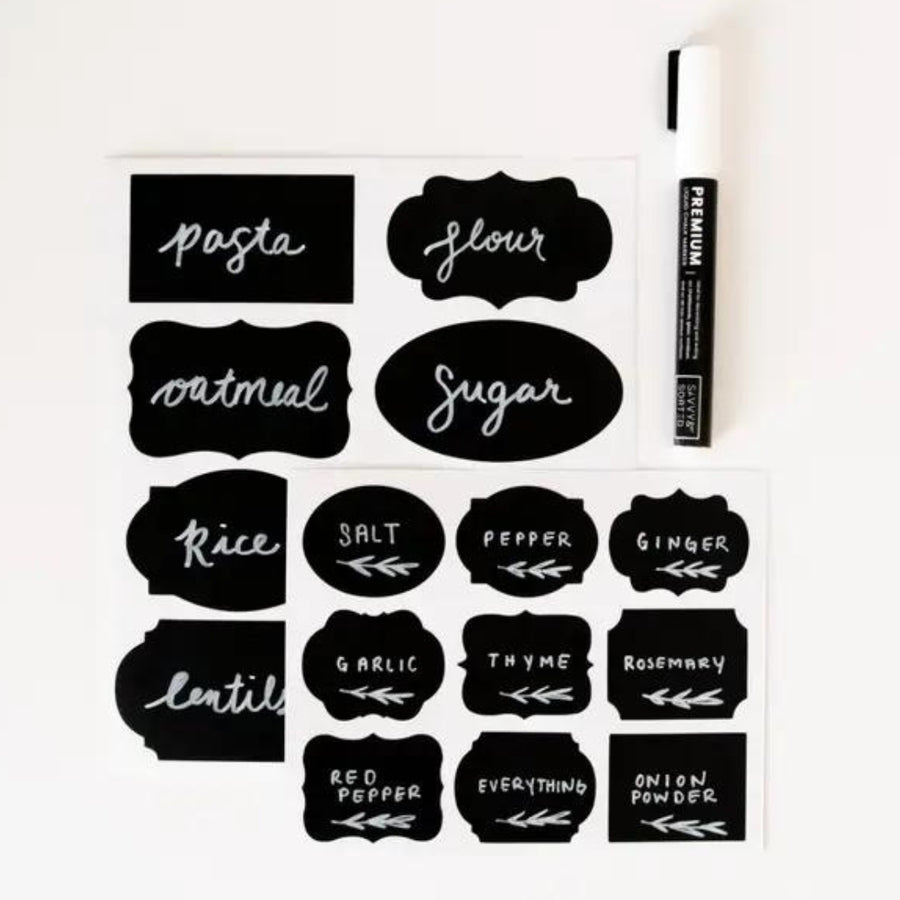 pasta
flour
oatmeal
Sugar
Rice
lentils
SALT
PEPPER
GINGER
GARLIC
THYME
ROSEMARY
RED
PEPPER
EVERYTHING
ONION
POWDER
PREMIUM
LIQUID CHALK MARKER
SAVVY &
SORTED